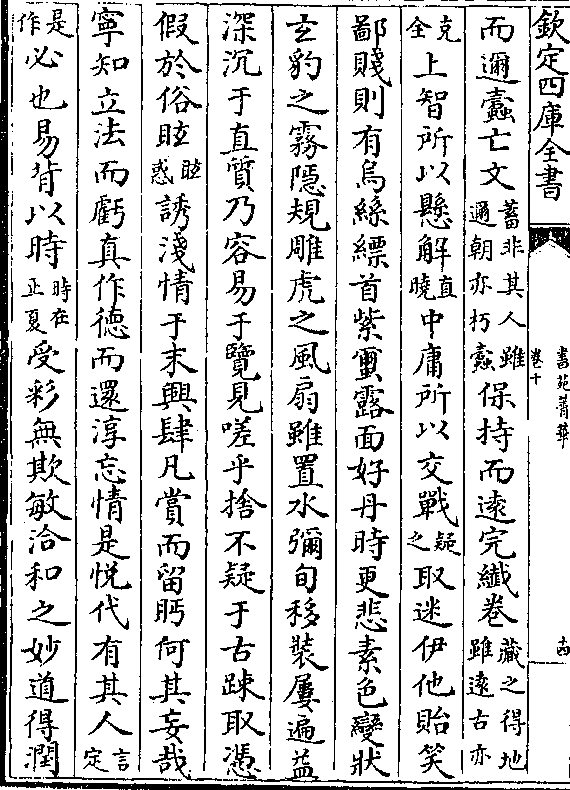 欽定四庫全書
書苑菁華
卷十
十四
而邇蠹亡文蓄非其人雖邇朝亦朽蠹保持而遠完纎卷藏之得地雖遠古亦
全克上智所以懸解直曉中庸所以交戰疑之取迷伊他貽笑
鄙賤則有烏絲縹首紫蠒露面好丹時更悲素色變狀
玄豹之霧隠規雕虎之風扇雖置水彌旬移裝屢遍益
深沉于直質乃容易于覽見嗟乎捨不疑于古踈取憑
假於俗眩眩惑誘淺情于末興肆凡賞而留眄何其妄哉
寧知立法而虧真作德而還淳忘情是悦代有其人言定
是作必也易背以時時在正夏受彩無欺敏洽和之妙道得潤